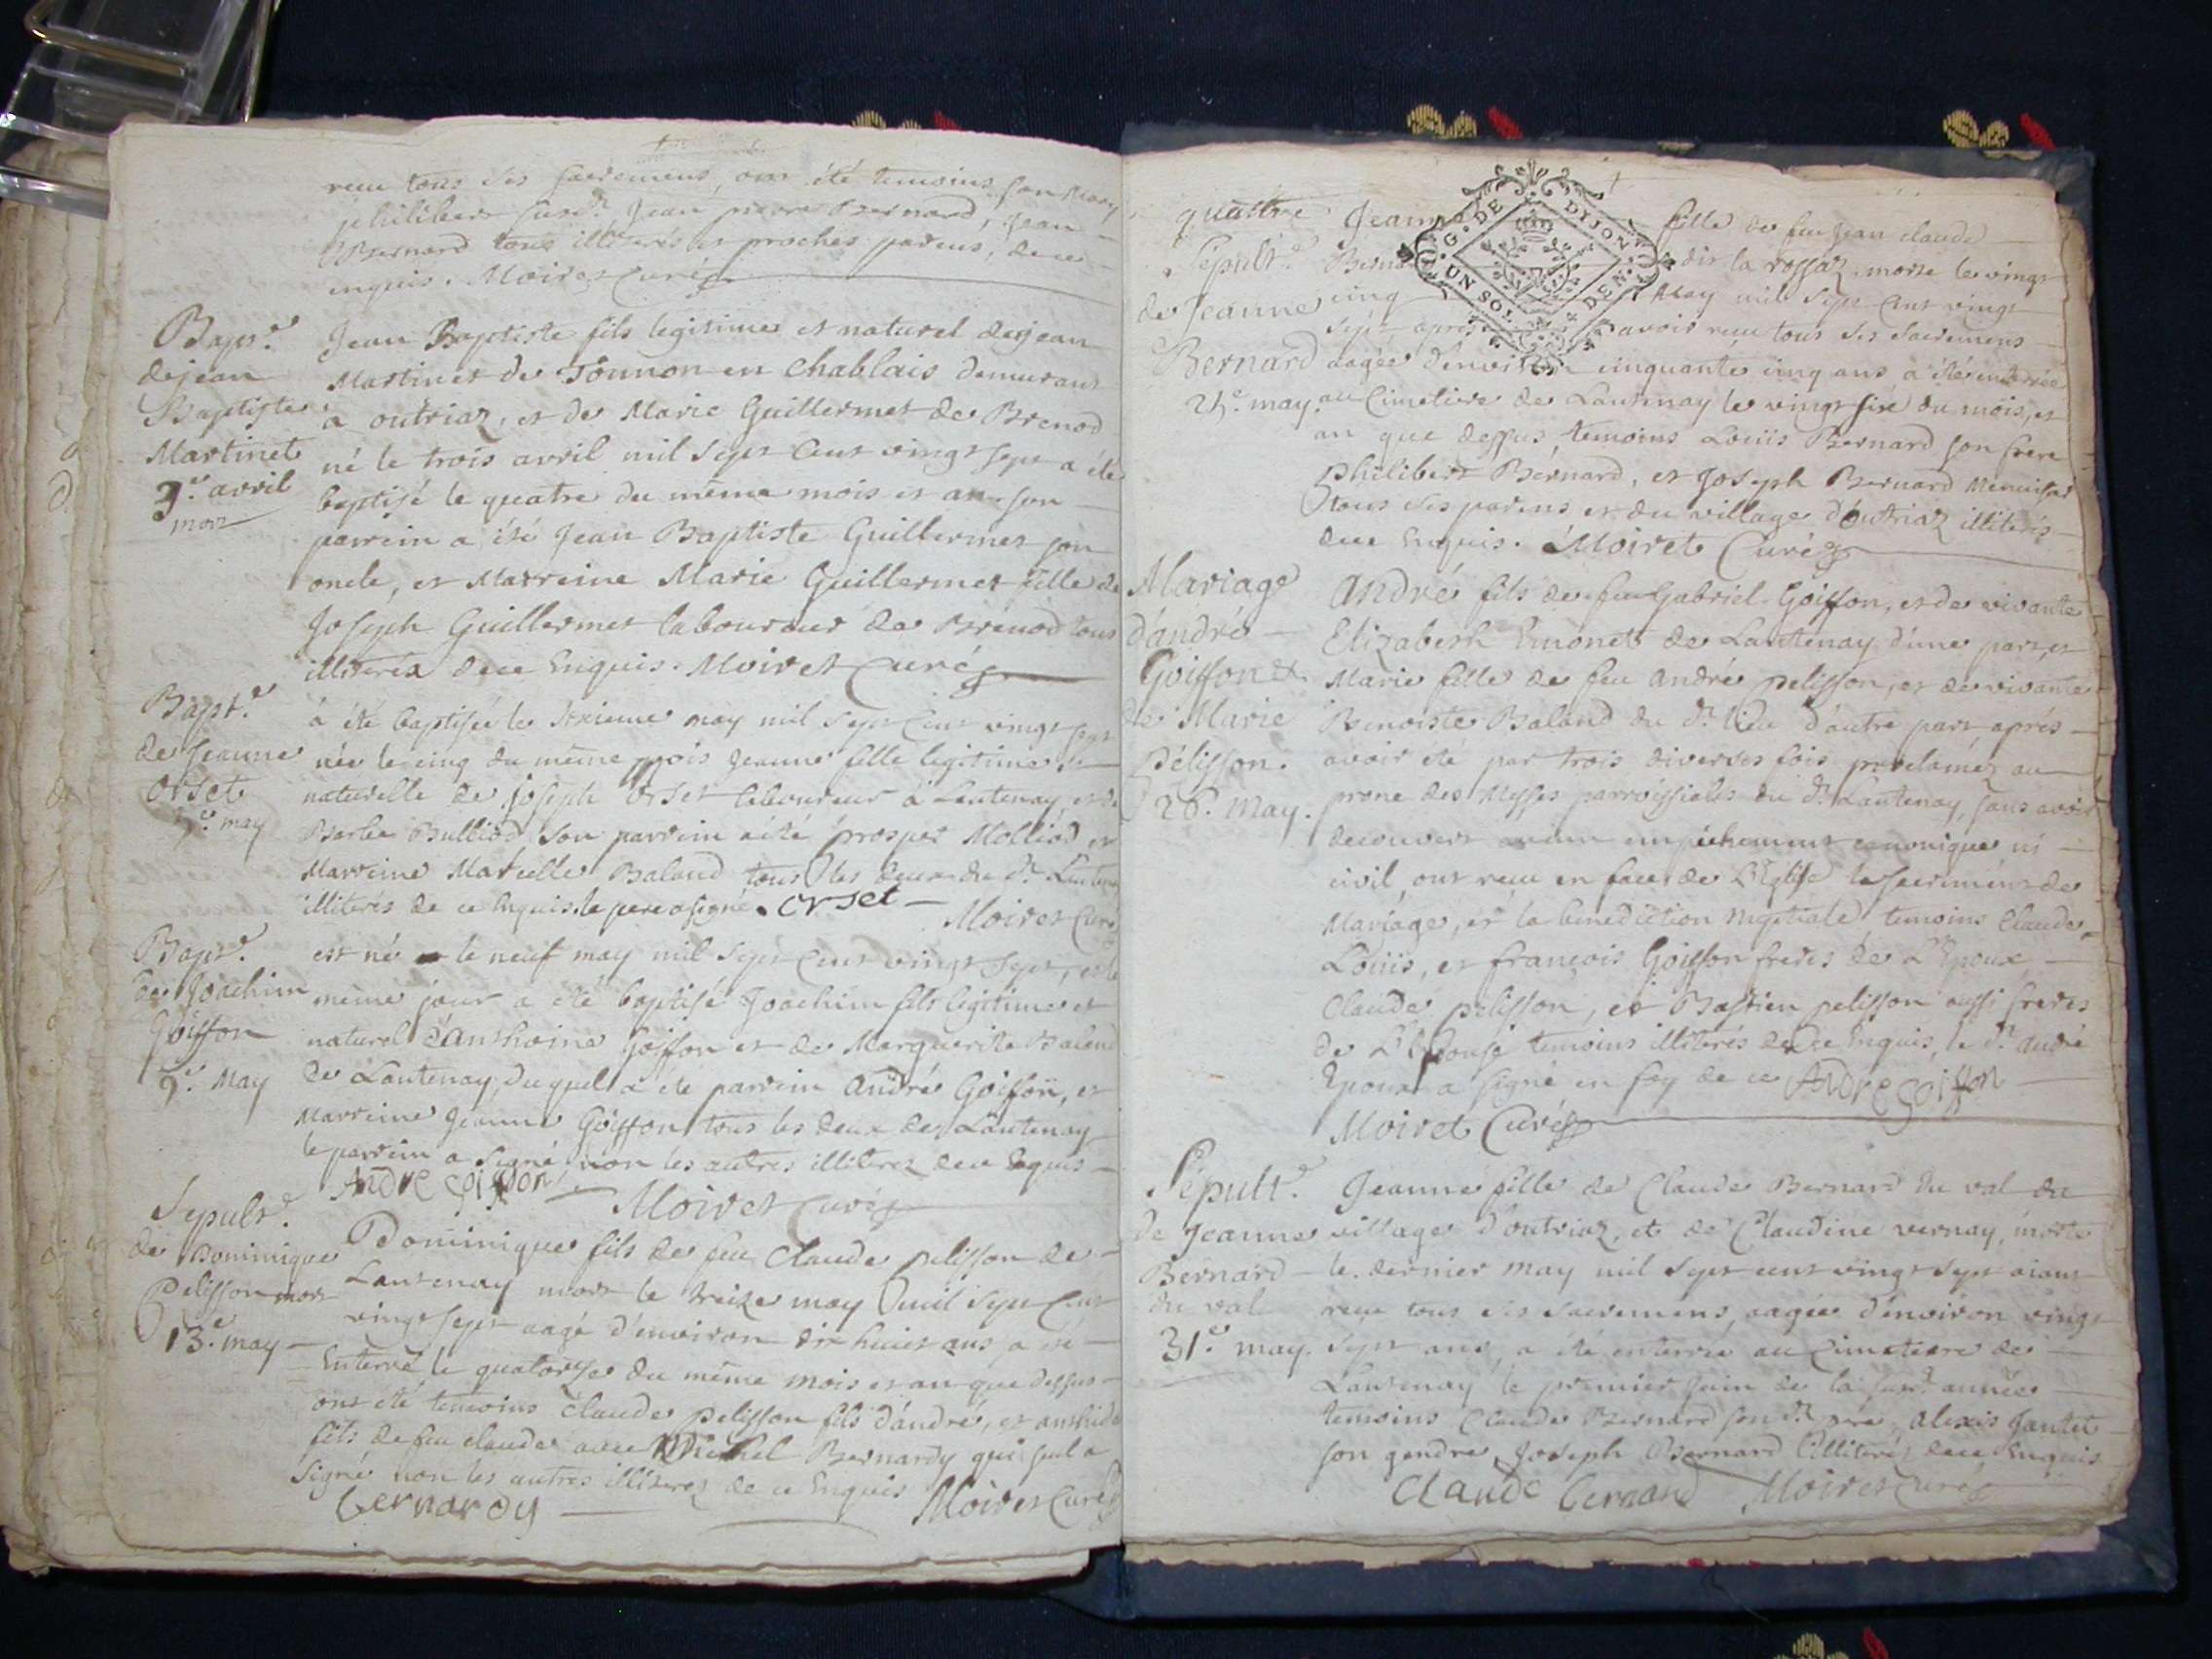 reçu tous ses sacremens, ont été temoins son mary
philibert susd.t Jean pierre Bernard, Jean
Bernard tous illiterés et proches parens, de ce
enquis. Moiret Curé
Bapt.e
de jean
Baptiste
Martinet
3.e avril
mort
Jean Baptiste fils legitime et naturel de jean
Martinet de Tonnon en Chablais demurant
a outriaz, et de Marie Guillermet de Brenod
né le trois avril mil sept cent vingt sept a été
baptisé le quatre du même mois et an son
parrein a été Jean Baptiste Guillermet son
oncle, et Marreine Marie Guillermet fille de
Joseph Guillermet laboureur de Brénod tous
illiterez de ce Enquis. Moiret Curé
Bapt.e
de Jeanne
Orset
5.e may
à été baptisée le sixieme may mil sept cent vingt sept
née le cinq du même mois Jeanne fille legitime et
naturelle de joseph Orset laboureur à Lantenay, et de
Barbe Bulliod, son parrein a été prosper Molliod et
Marreine Marcelle Baland tous les deux du d.t Lantenay
illiterés de ce Enquis, le pere a signé. orset
Moiret Curé
Bapt.e
de Joachim
Goiffon
9.e May
est né le neuf may mil sept cent vingt sept, et le
même jour a été baptisé Joachim fils legitime et
naturel d'anthoine Goiffon et de Marguerite Baland
de Lantenay, duquel a été parrein André Goiffon, et
Marreine Jeanne Goiffon tous les deux de Lantenay
le parrein a signé non les autres illiterez de ce Enquis
Andre goiffon Moiret Curé
Sepult.e
de Dominique
Pelisson mort
13.e may
Dominique fils de feu Claude pelisson de
Lantenay mort le treize may mil sept cent
vingt sept aagé d'environ dix huict ans a été
Enterré le quatorze du même mois et an que dessus
ont été temoins Claude pelisson fils d'andré, et anthide
fils de feu claude avec Michel Bernardy qui seul a
signé non les autres illiterez de ce Enquis
bernardy Moiret Curé
quattre
Sepult.e
de Jeanne
Bernard
25.e may
Jeanne fille de feu Jean claude
Bernard dit la rossaz, morte le vingt
cinq May mil sept cent vingt
sept apres avoir reçu tous ses sacremens
aagée d'environ cinquante cinq ans a été enterrée
au Cimetiere de Lantenay le vingt sixe du mois, et
an que dessus, temoins Loüis Bernard son frere
philibert Bernard, et Joseph Bernard Menuisier
tous ses parens et du village d'outriaz illiterés
de ce Enquis. Moiret Curé
G. DE DIJON
UN SOL DEN.
Mariage
d'andré
Goiffon &
de Marie
Pélisson.
26.e May.
André fils de feu Gabriel Goiffon, et de vivante
Elizabeth Emonet de Lantenay d'une part, et
Marie fille de feu André pelisson, et de vivante
Benoiste Baland du d.t lieu d'autre part après
avoir été par trois diverses fois proclaméz au
prone des Messes parroissiales du d.t Lantenay, sans avoir
decouvert aucun empéchement canonique ni
civil, ont reçu en face de L'Eglise le sacrement de
Mariage, et la benediction nuptiale, temoins Claude,
Loüis, et françois Goiffon freres de L'Epoux
Claude pelisson, et Bastien pelisson aussi freres
de L'Epouse temoins illiterés de ce Enquis, le d.t andré
Epoux a signé en foy de ce Andre goiffon
Moiret Curé
Sépult.e
de Jeanne
Bernard
du val
31.e may.
Jeanne fille de Claude Bernard du val du
village d'outriaz, et de Claudine vernay, morte
le dernier may mil sept cent vingt sept aiant
reçu tous ses sacremens, aagée d'environ vingt
sept ans, a été enterrée au Cimetiere de
Lantenay le premier Juin de la susd.e année
temoins Claude Bernard son d.t pere, Alexis Jantet
son gendre, Joseph Bernard illiterés de ce Enquis
Claude bernard Moiret Curé